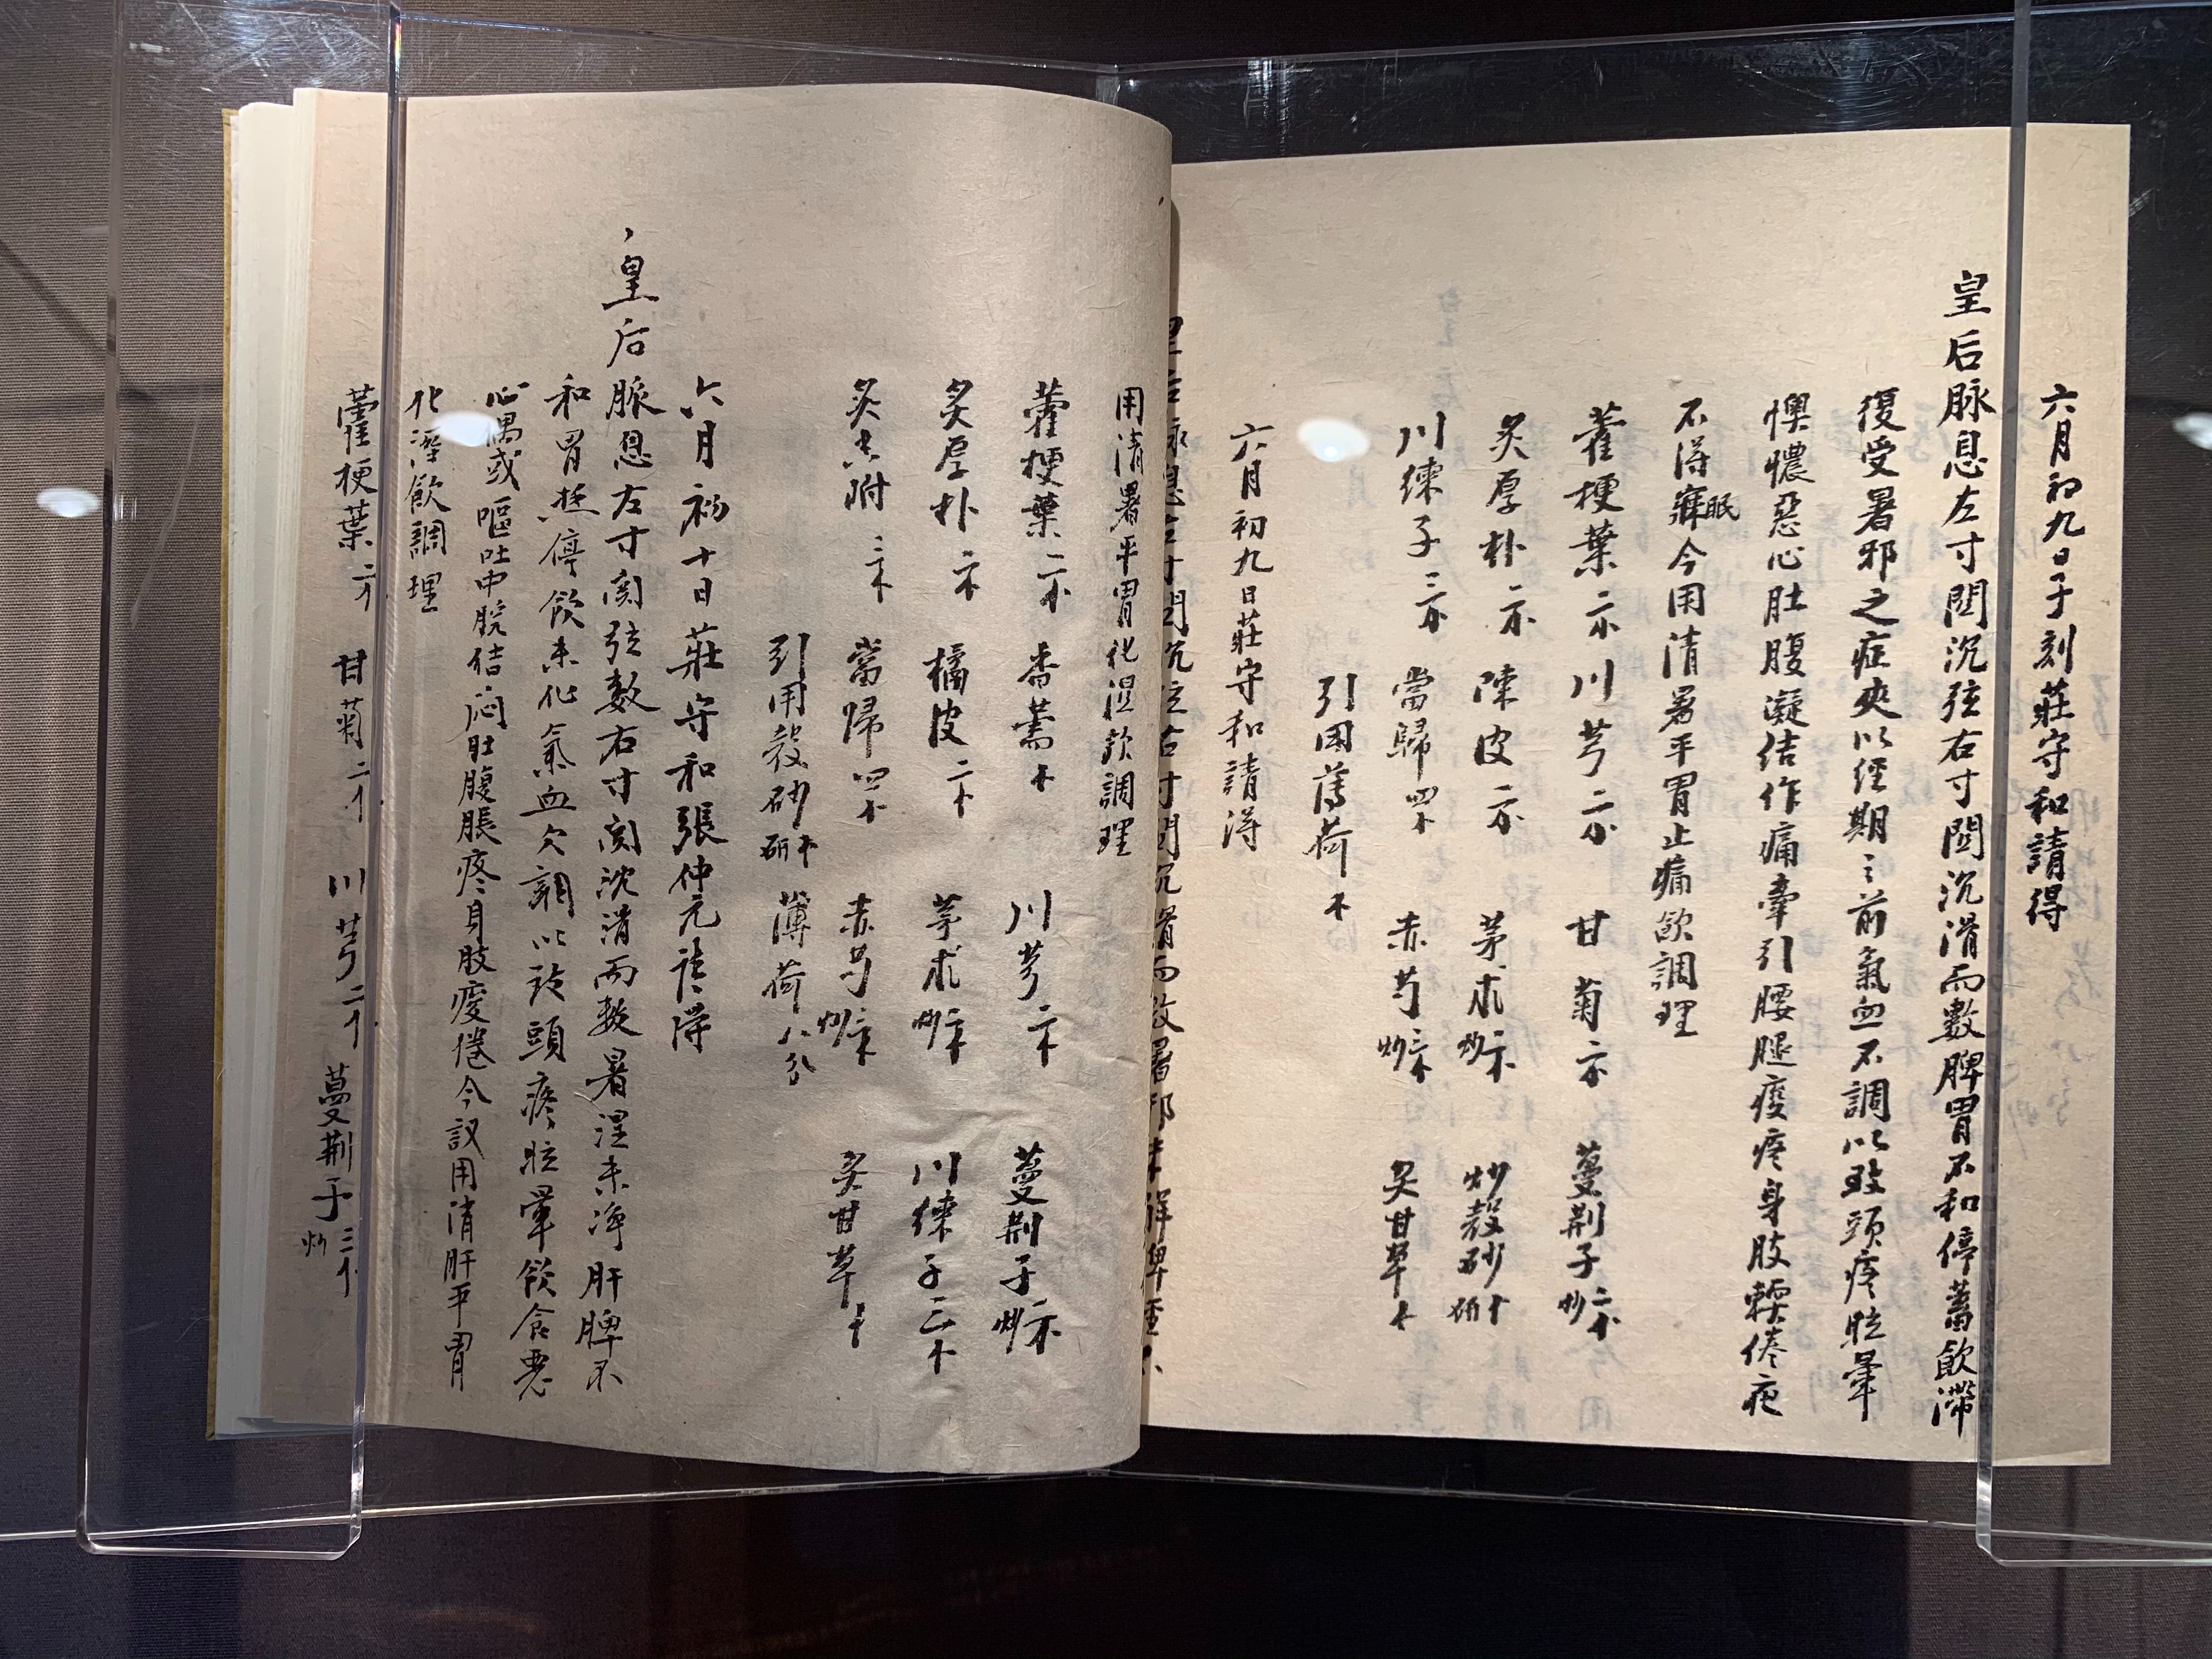 六月初九日子刻莊守和請得
皇后脉息左寸關沉弦右寸關沉滑而數脾胃不和停蓄飲滯
復受暑邪之症夾以經期之前氣血不調以致頭疼眩暈
懊憹惡心肚腹凝结作痛牽引腰腿痠疼身肢輭倦夜
不得寐眠今用清暑平胃止痛飲調理
藿梗葉二川芎二甘菊二蔓荆子三炒
炙厚朴二陳皮二茅朮炒二炒穀砂研一
川練子三當歸四赤芍炒三炙甘草一
引用薄荷一
六月初九日莊守和請得
皇后脉息左寸關沉弦右寸關沉滑而數暑邪未解脾經不
用清暑平胃化湿飲調理
藿梗葉二香薷一川芎二蔓荆子炒三
炙厚朴二橘皮二茅朮炒二川練子三
炙香附三當歸四赤芍炒三炙甘草一
引用穀砂研一薄荷八分
六月初十日莊守和張仲元請得
皇后脈息左寸関弦數右寸関沈滑而數暑湿未净肝脾不
和胃燕停飲未化氣血欠調以致頭疼眩暈飲食惡
心偶或嘔吐中脘结悶肚腹脹疼身肢痠倦今議用清肝平胃
化溼飲調理
藿梗葉二甘菊二川芎二蔓荆子三炒